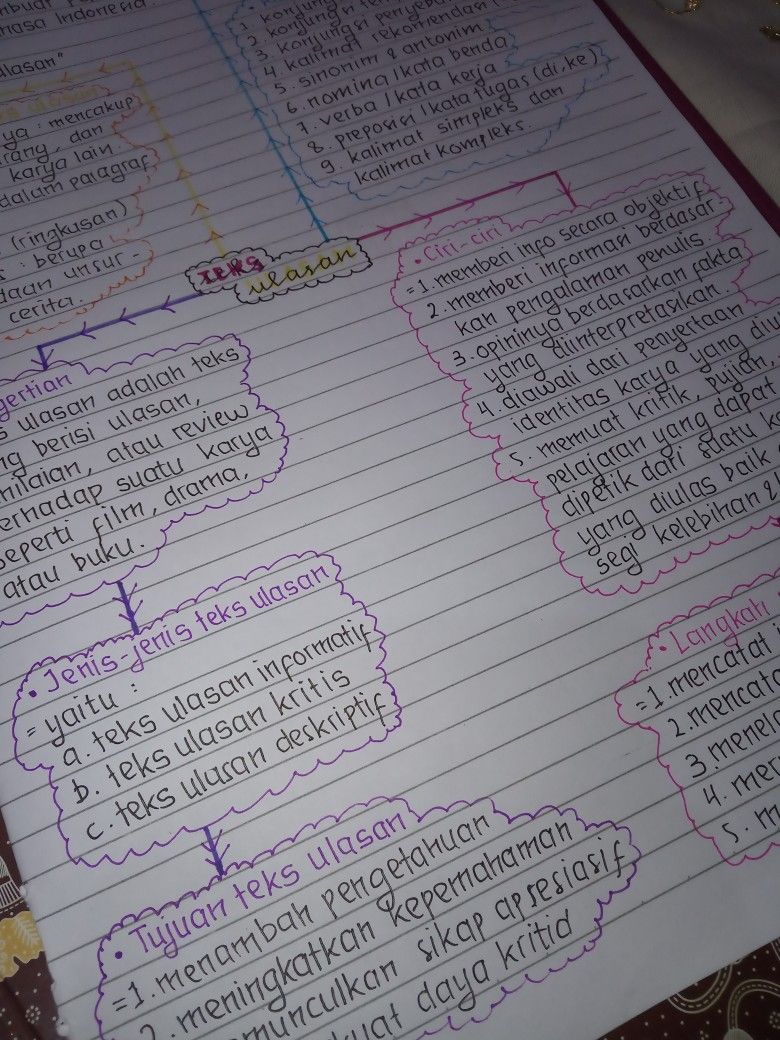 asa Indonesia.
ulasan"
ulasan
ya : mencakup
rang, dan
karya lain.
dalam paragraf
(ringkusan)
s : berupa
daan unsur-
cerita.
3. konjungsi
4. kalimat rekomendasi
5. sinonim & antonim
6. nomina / kata benda
7. verba / kata kerja
8. preposisi / kata tugas (di, ke)
9. kalimat simpleks dan
kalimat kompleks.
Teks
ulasan
• Ciri-ciri
= 1. memberi info secara objektif
2. memberi informasi berdasar
kan pengalaman penulis.
3. opininya berdasarkan fakta
yang diinterpretasikan.
4. diawali dari penyertaan
identitas karya yang diu
5. memuat kritik, pujian,
pelajaran yang dapat
dipetik dari suatu ka
yang diulas baik
segi kelebihan &
gertian
s ulasan adalah teks
ng berisi ulasan,
nilaian, atau review
erhadap suatu karya
seperti film, drama,
atau buku.
• Jenis-jenis teks ulasan
= yaitu :
a. teks ulasan informatif
b. teks ulasan kritis
c. teks ulasan deskriptif
• Langkah
= 1. mencatat i
2. mencata
3. menel
4. men
5. m
• Tujuan teks ulasan
= 1. menambah pengetahuan
2. meningkatkan kepemahaman
munculkan sikap apresiasif
kuat daya kritid